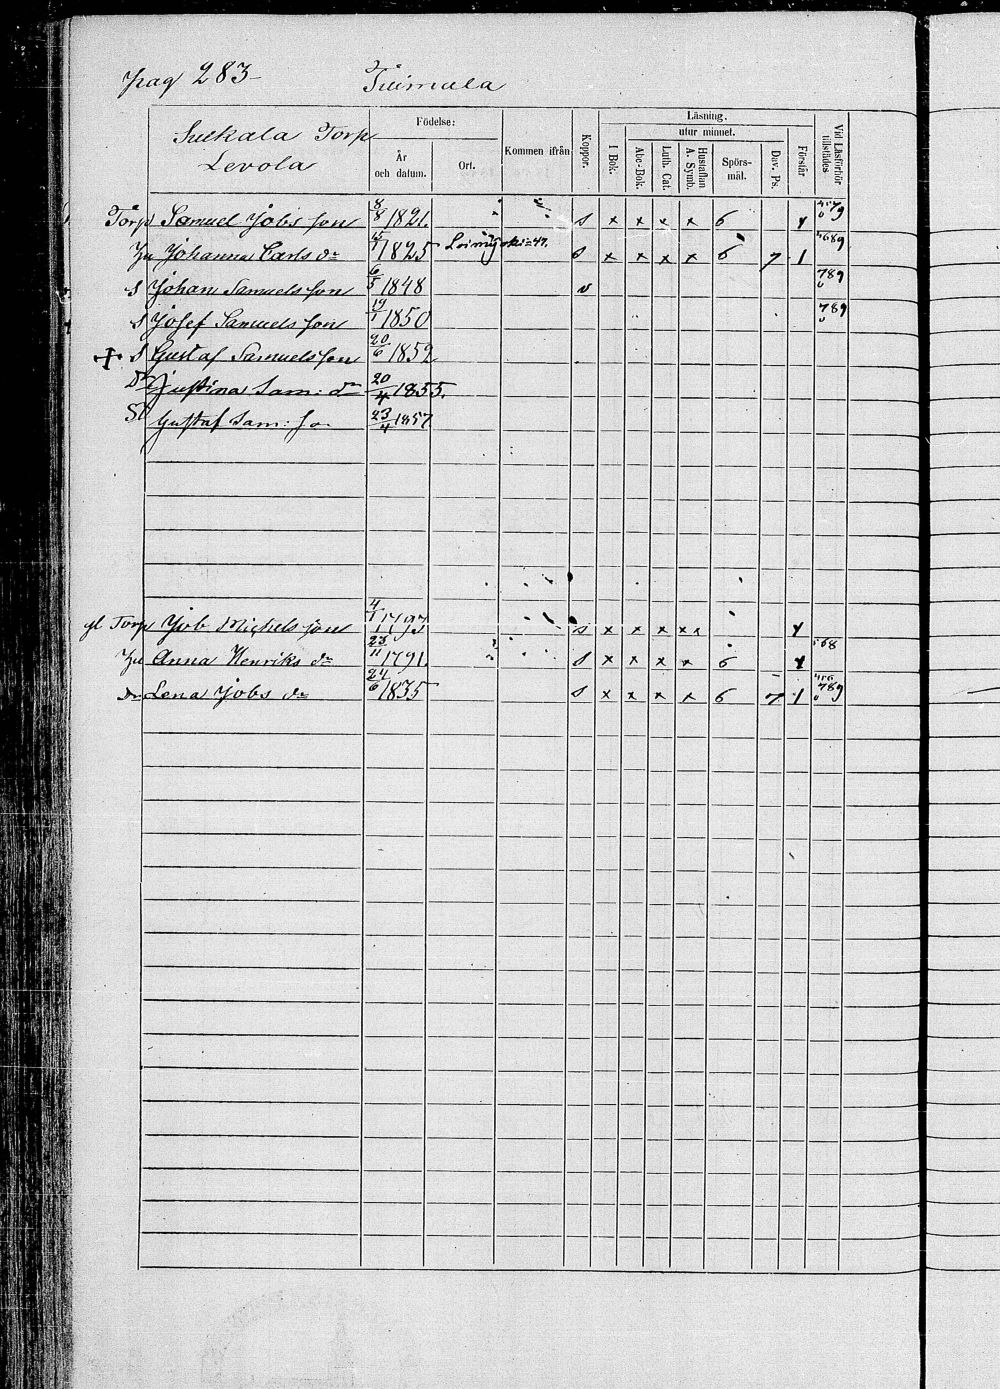 pag 283
Tuimala
Suckala Torp
Levola
Födelse:
År och datum.
Ort.
Kommen ifrån
Koppor.
Läsning.
I Bok.
utur minnet.
Abc-Bok.
Luth. Cat.
Hustaflan A. Symb.
Spörs-mål.
Dav. Ps.
Förstår
Vid Läsförhör tillstädes
Torp Samuel Jobs son 8/8 1821. s x x x x 6 789
hu Johanna Carls dr 15/1 1825 Loimijoki 47. s x x x x 6 7 1 4689
s Johan Samuels son 6/5 1848 v 789
s Josef Samuels son 19/1 1850 789
s Gustaf Samuels son 20/6 1852
Dr Justina Sam: dr 20/4 1855.
S Gustaf Sam: so 23/4 1857
gl Torp Job Michels son 4/1 1793 s x x x x x
hu Anna Henriks dr 23/11 1791. s x x x x 6 68
Dr Lena Jobs dr 24/6 1835 s x x x x 6 7 1 456 789